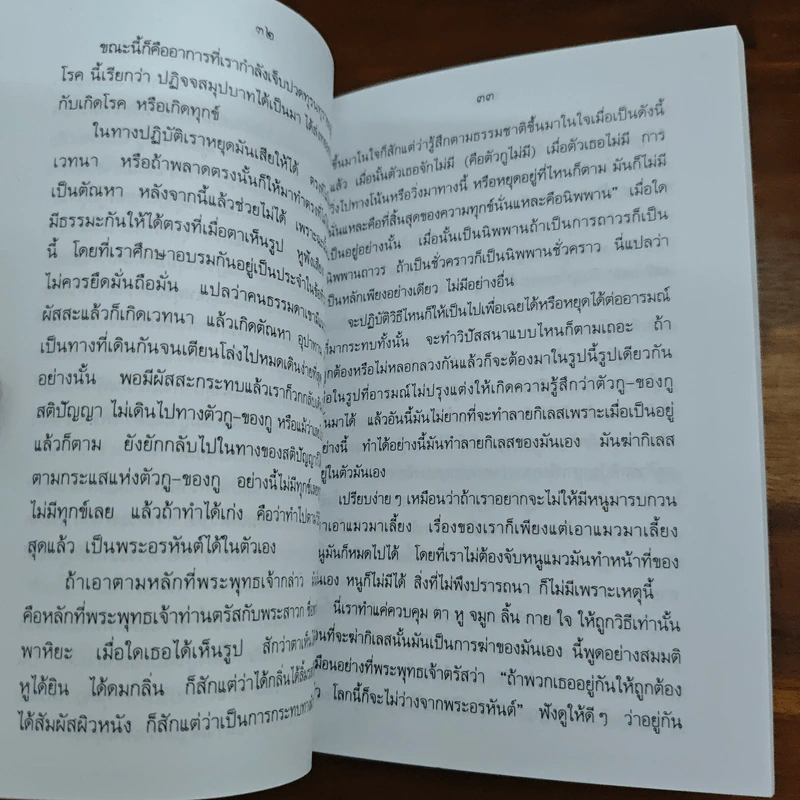 ๓๒
ขณะนี้ก็คืออาการที่เรากำลังเจ็บปวด
โรค นี้เรียกว่า ปฏิจจสมุปบาทได้เป็นมา
กับเกิดโรค หรือเกิดทุกข์
ในทางปฏิบัติเราหยุดมันเสียให้ได้ ตรง
เวทนา หรือถ้าพลาดตรงนั้นก็ให้มาทำตรง
เป็นตัณหา หลังจากนี้แล้วช่วยไม่ได้
มีธรรมะกันให้ได้ตรงที่เมื่อตาเห็นรูป
นี้ โดยที่เราศึกษาอบรมกันอยู่เป็นประจำ
ไม่ควรยึดมั่นถือมั่น แปลว่าคนธรรมดา
ผัสสะแล้วก็เกิดเวทนา แล้วเกิดตัณหา
เป็นทางที่เดินกันจนเตียนโล่งไปหมดเดินง่าย
อย่างนั้น พอมีผัสสะกระทบแล้วเราก็วก
สติปัญญา ไม่เดินไปทางตัวกู-ของกู
แล้วก็ตาม ยังยักกลับไปในทางของสติปัญญา
ตามกระแสแห่งตัวกู-ของกู อย่างนี้ไม่มีทุกข์เลย
ไม่มีทุกข์เลย แล้วถ้าทำได้เก่ง คือว่าทำไป
สุดแล้ว เป็นพระอรหันต์ได้ในตัวเอง
ถ้าเอาตามหลักที่พระพุทธเจ้ากล่าว
คือหลักที่พระพุทธเจ้าท่านตรัสกับพระสาวก
พาหิยะ เมื่อใดเธอได้เห็นรูป สักว่าตาเห็น
หูได้ยิน ได้ดมกลิ่น ก็สักแต่ว่าได้กลิ่น
ได้สัมผัสผิวหนัง ก็สักแต่ว่าเป็นการกระทบ
๓๓
ขึ้นมาในใจก็สักแต่ว่ารู้สึกตามธรรมชาติขึ้นมาในใจเมื่อเป็นดังนี้
แล้ว เมื่อนั้นตัวเธอจักไม่มี (คือตัวกูไม่มี) เมื่อตัวเธอไม่มี การ
วิ่งไปทางโน้นหรือวิ่งมาทางนี้ หรือหยุดอยู่ที่ไหนก็ตาม มันก็ไม่มี
นั่นแหละคือที่สิ้นสุดของความทุกข์นั่นแหละคือนิพพาน” เมื่อใด
เป็นอยู่อย่างนั้น เมื่อนั้นเป็นนิพพานถ้าเป็นการถาวรก็เป็น
นิพพานถาวร ถ้าเป็นชั่วคราวก็เป็นนิพพานชั่วคราว นี่แปลว่า
เป็นหลักเพียงอย่างเดียว ไม่มีอย่างอื่น
จะปฏิบัติวิธีไหนก็ให้เป็นไปเพื่อเฉยได้หรือหยุดได้ต่ออารมณ์
ที่มากระทบทั้งนั้น จะทำวิปัสสนาแบบไหนก็ตามเถอะ ถ้า
ถูกต้องหรือไม่หลอกลวงกันแล้วก็จะต้องมาในรูปนี้รูปเดียวกัน
คือในรูปที่อารมณ์ไม่ปรุงแต่งให้เกิดความรู้สึกว่าตัวกู-ของกู
ขึ้นมาได้ แล้วอันนี้มันไม่ยากที่จะทำลายกิเลสเพราะเมื่อเป็นอยู่
อย่างนี้ ทำได้อย่างนี้มันทำลายกิเลสของมันเอง มันฆ่ากิเลส
อยู่ในตัวมันเอง
เปรียบง่าย ๆ เหมือนว่าถ้าเราอยากจะไม่ให้มีหนูมารบกวน
เราเอาแมวมาเลี้ยง เรื่องของเราก็เพียงแต่เอาแมวมาเลี้ยง
หนูมันก็หมดไปได้ โดยที่เราไม่ต้องจับหนูแมวมันทำหน้าที่ของ
มันเอง หนูก็ไม่มีได้ สิ่งที่ไม่พึงปรารถนา ก็ไม่มีเพราะเหตุนี้
นี่เราทำแค่ควบคุม ตา หู จมูก ลิ้น กาย ใจ ให้ถูกวิธีเท่านั้น
ส่วนที่จะฆ่ากิเลสนั้นมันเป็นการฆ่าของมันเอง นี้พูดอย่างสมมติ
เหมือนอย่างที่พระพุทธเจ้าตรัสว่า “ถ้าพวกเธออยู่กันให้ถูกต้อง
โลกนี้ก็จะไม่ว่างจากพระอรหันต์” ฟังดูให้ดี ๆ ว่าอยู่กัน